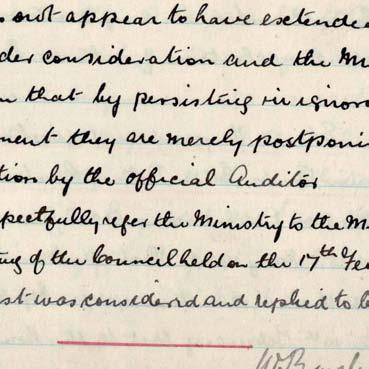 s not appear to have extende
der consideration and the M
n that by persisting in ignor
ment they are merely postponi
tion by the official Auditor
pectfully refer the Ministry to the M
ing of the Council held on the 17th Fe
st was considered and replied to b